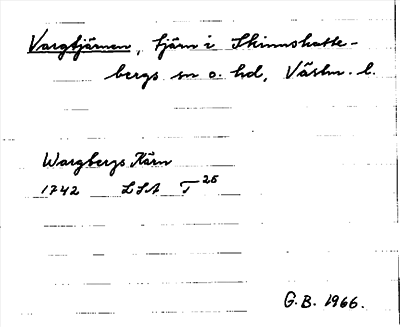 Vargtjärnen, tjärn i Skinnskatte-
bergs sn o. hd, Västm. l.
Wargbergs Kärn
1742 LSA T 25
G.B. 1966.